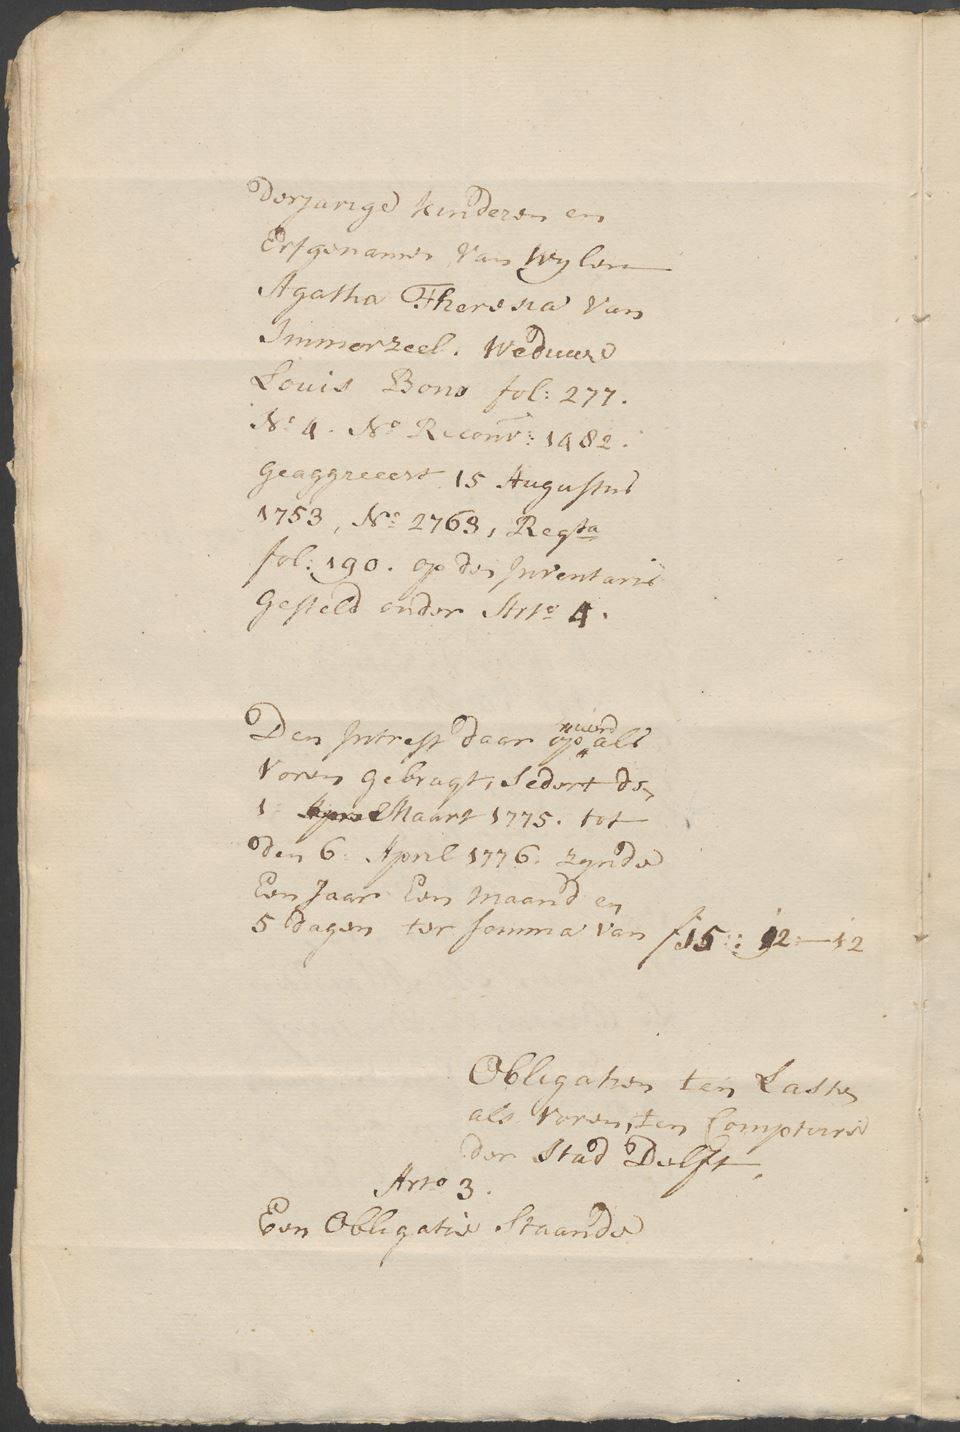 derjarige kinderen en
Erfgenamen van Wylen
Agatha Theresia van
Immerzeel. Weduwe
Louis Bons fol: 277.
No 4. No Reconr: 1482.
geaggreeert 15 Augustus
1753, No 2763, Regta
fol: 190. op den Inventaris
gesteld onder Arto 4.
Den Intrest daar op als
voren gebragt, sedert den
1: Maart 1775. tot
den 6: April 1776. zynde
Een Jaar Een maand en
5 dagen ter somma van f 15:12-12
Obligatien ten Laste
als voren, ten Comptoire
der Stad Delft,
Arto 3.
Een Obligatie Staande